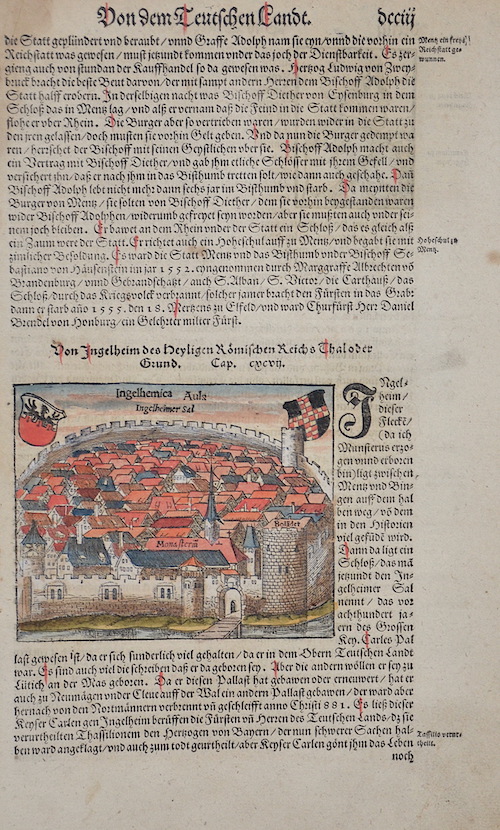 Von dem Teutschen Landt. dcciij
die Statt geplündert vnd beraubt / vnnd Graffe Adolph nam sie eyn / vnnd die vorhin ein
Reichstatt was gewesen / must jetzundt kommen vnder das joch der Dienstbarkeit. Es zer-
gieng auch von stundan der Kauffhandel so da gewesen was. Hertzog Ludwig von Zwey-
bruck bracht die beste Beut darvon / der mit sampt andern Herren dem Bischoff Adolph die
Statt halff erobern. In derselbigen nacht was Bischoff Diether von Eysenburg in dem
Schloß das in Mentz lag / vnd alß er vernam daß die Feind in die Statt kommen waren /
flohe er vber Rhein. Die Burger aber so vertrieben waren / wurden wider in die Statt zu
den jren gelassen / doch musten sie vorhin Gelt geben. Vnd da nun die Burger gedempt wa
ren / herrschet der Bischoff mit seinen Geystlichen vber sie. Bischoff Adolph macht auch
ein Vertrag mit Bischoff Diether / vnd gab jhm etliche Schlösser mit jhrem Gefell / vnd
versichert jhn / daß er nach jhm in das Bisthumb tretten solt / wie dann auch geschahe. Dañ
Bischoff Adolph lebt nicht mehr dann sechs jar im Bisthumb vnd starb. Da meynten die
Burger von Mentz / sie solten von Bischoff Diether / dem sie vorhin beygestanden waren
wider Bischoff Adolphen / widerumb gefreyet seyn worden / aber sie mußten auch vnder sei-
nem joch bleiben. Er bawet an dem Rhein vnder der Statt ein Schloß / das es gleich alß
ein Zaum were der Statt. Er richtet auch ein Hoheschul auff zu Mentz / vnd begabt sie mit
zimlicher Besoldung. Es ward die Statt Mentz vnd das Bisthumb vnder Bischoff Se-
bastiano von Häusenstein im jar 1552. eyngenommen durch Marggraffe Albrechten võ
Brandenburg / vnnd Gebrandschatzt / auch S. Alban / S. Victor / die Carthauß / das
Schloß / durch das Kriegsvolck verbrannt / solcher jamer bracht den Fürsten in das Grab:
dann er starb año 1555. den 18. Mertzens zu Elfeld / vnd ward Churfürst Herr Daniel
Brendel von Honburg / ein Gelehrter milter Fürst.
Mentz ein freye
Reichstatt ge-
wunnen.
Hoheschul zu
Mentz.
Von Ingelheim des Heyligen Römischen Reichs Thal oder
Grund. Cap. cxcvij.
Ingelhemica Aula
Ingelheimer Sal
Monasteriũ
Bolãder
INgel-
heim /
dieser
Fleckẽ /
da ich
Munsterus erzo-
gen vnnd erboren
bin) ligt zwischen
Mentz vnd Bin-
gen auff dem hal
ben weg / võ dem
in den Historien
viel gesũdẽ wird.
Dann da ligt ein
Schloß / das mã
jetzundt den In-
gelheimer Sal
nennt / das vor
achthundert ja-
ren des Grossen
Key. Carles Pal
last gewesen ist / da er sich sunderlich viel gehalten / da er in dem Obern Teutschen Landt
war. Es sind auch viel die schreiben daß er da geboren sey. Aber die andern wöllen er sey zu
Lütich an der Meas geboren. Da er diesen Pallast hat gebawen oder erneuwert / hat er
auch zu Neumägen vnder Cleue auff der Wal ein andern Pallast gebawen / der ward aber
hernach von den Nortmännern verbrennt vñ geschleifft anno Christi 881. Es ließ dieser
Keyser Carlen gen Ingelheim berüffen die Fürsten vñ Herren des Teutschen Lands / dz sie
verurtheilten Thassilionem den Hertzogen von Bayern / der nun schwerer Sachen hal-
ben ward angeklagt / vnd auch zum todt geurtheilt / aber Keyser Carlen gönt jhm das Leben
noch
Tassilio verur-
theilt.